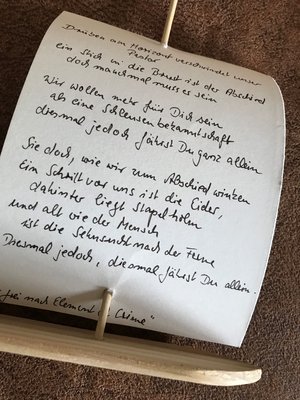 Draußen am Horizont verschwindet unser
Pastor
ein Stich in die Brust ist der Abschied
doch manchmal muss es sein
Wir wollen mehr für Dich sein
als eine Schleusenbekanntschaft
diesmal jedoch fährst Du ganz allein
Sieh doch, wie wir zum Abschied winken
Ein Schritt vor uns ist die Eider,
dahinter liegt Stapelholm
und alt wie der Mensch
ist die Sehnsucht nach der Ferne
Diesmal jedoch, diesmal fährst Du allein.
frei nach Element of Crime"